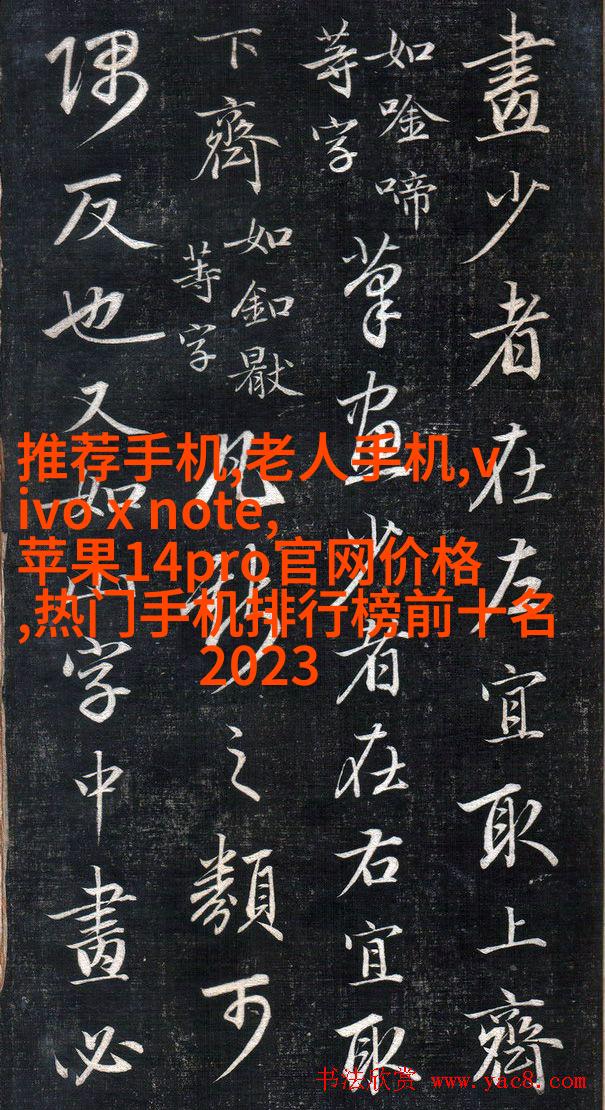 畫少者在左宜取上齊
如唫啼
等字
筆画少者在右宜取
下齊
如釦
等字
凡之類可
隅反也又如字中畫必
推荐手机,老人手机,v
ivo x note,
苹果14pro官网价格
,热门手机排行榜前十名
2023
书法欣赏 www.yac8.com